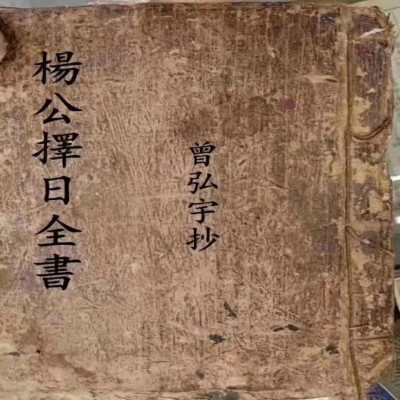 楊公擇日全書
曾弘宇抄